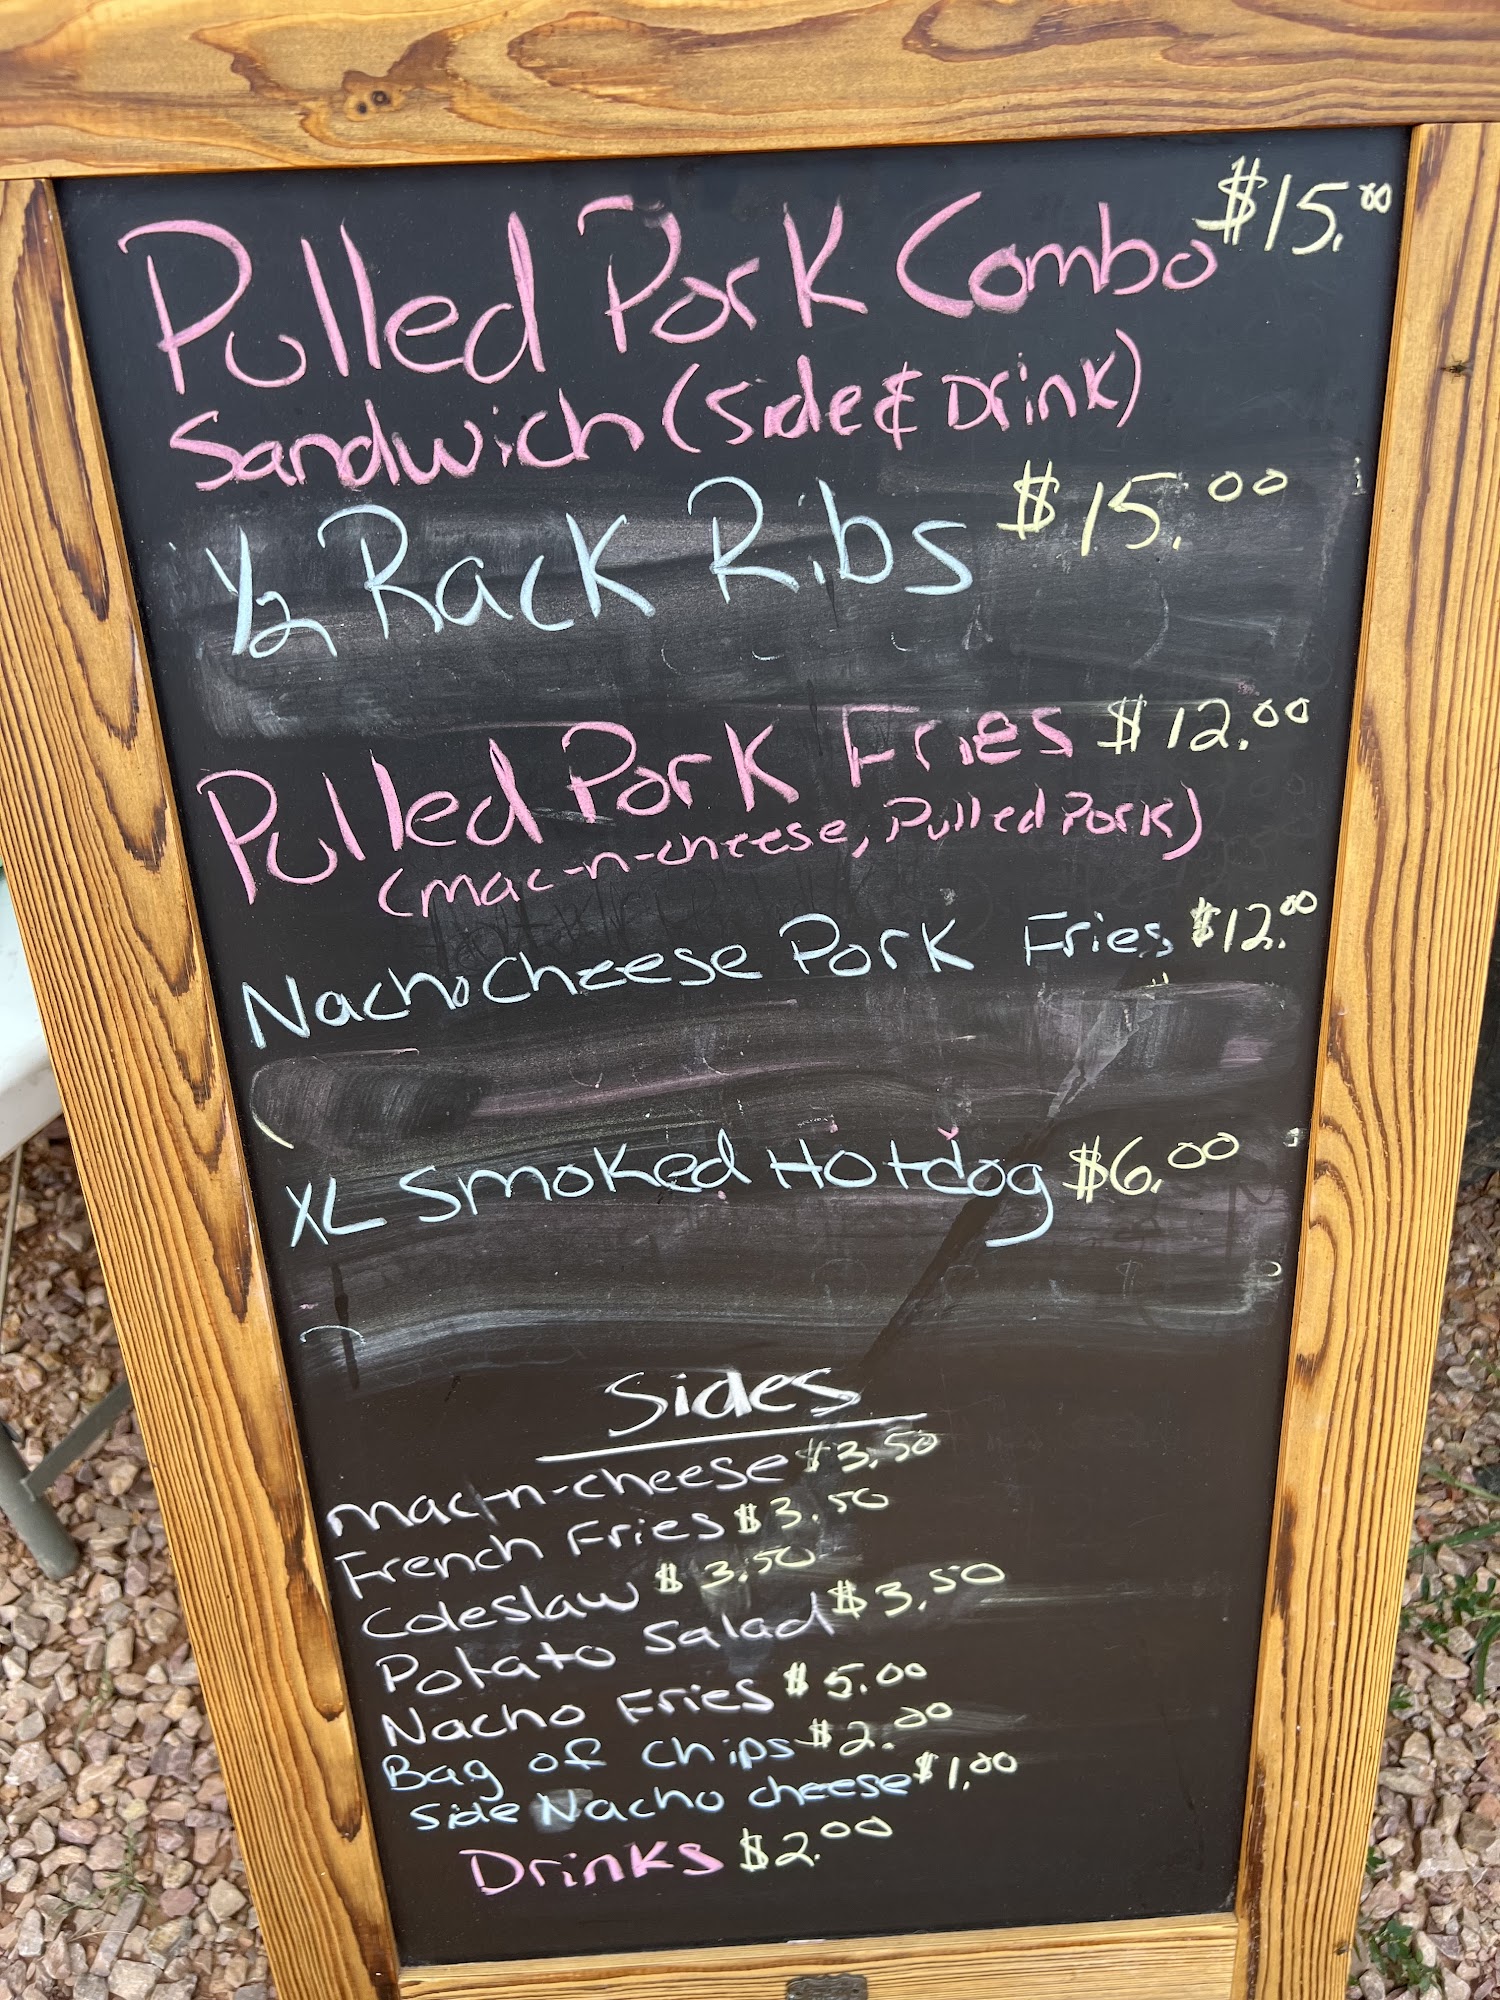 Pulled Pork Combo $15.00
Sandwich (Side & Drink)
1/2 Rack Ribs $15.00
Pulled Pork Fries $12.00
(mac-n-cheese, Pulled Pork)
Nacho Cheese Pork Fries $12.00
XL Smoked Hotdog $6.00
Sides
mac-n-cheese $3.50
French Fries $3.50
Coleslaw $3.50
Potato Salad $3.50
Nacho Fries $5.00
Bag of Chips $2.00
Side Nacho cheese $1.00
Drinks $2.00